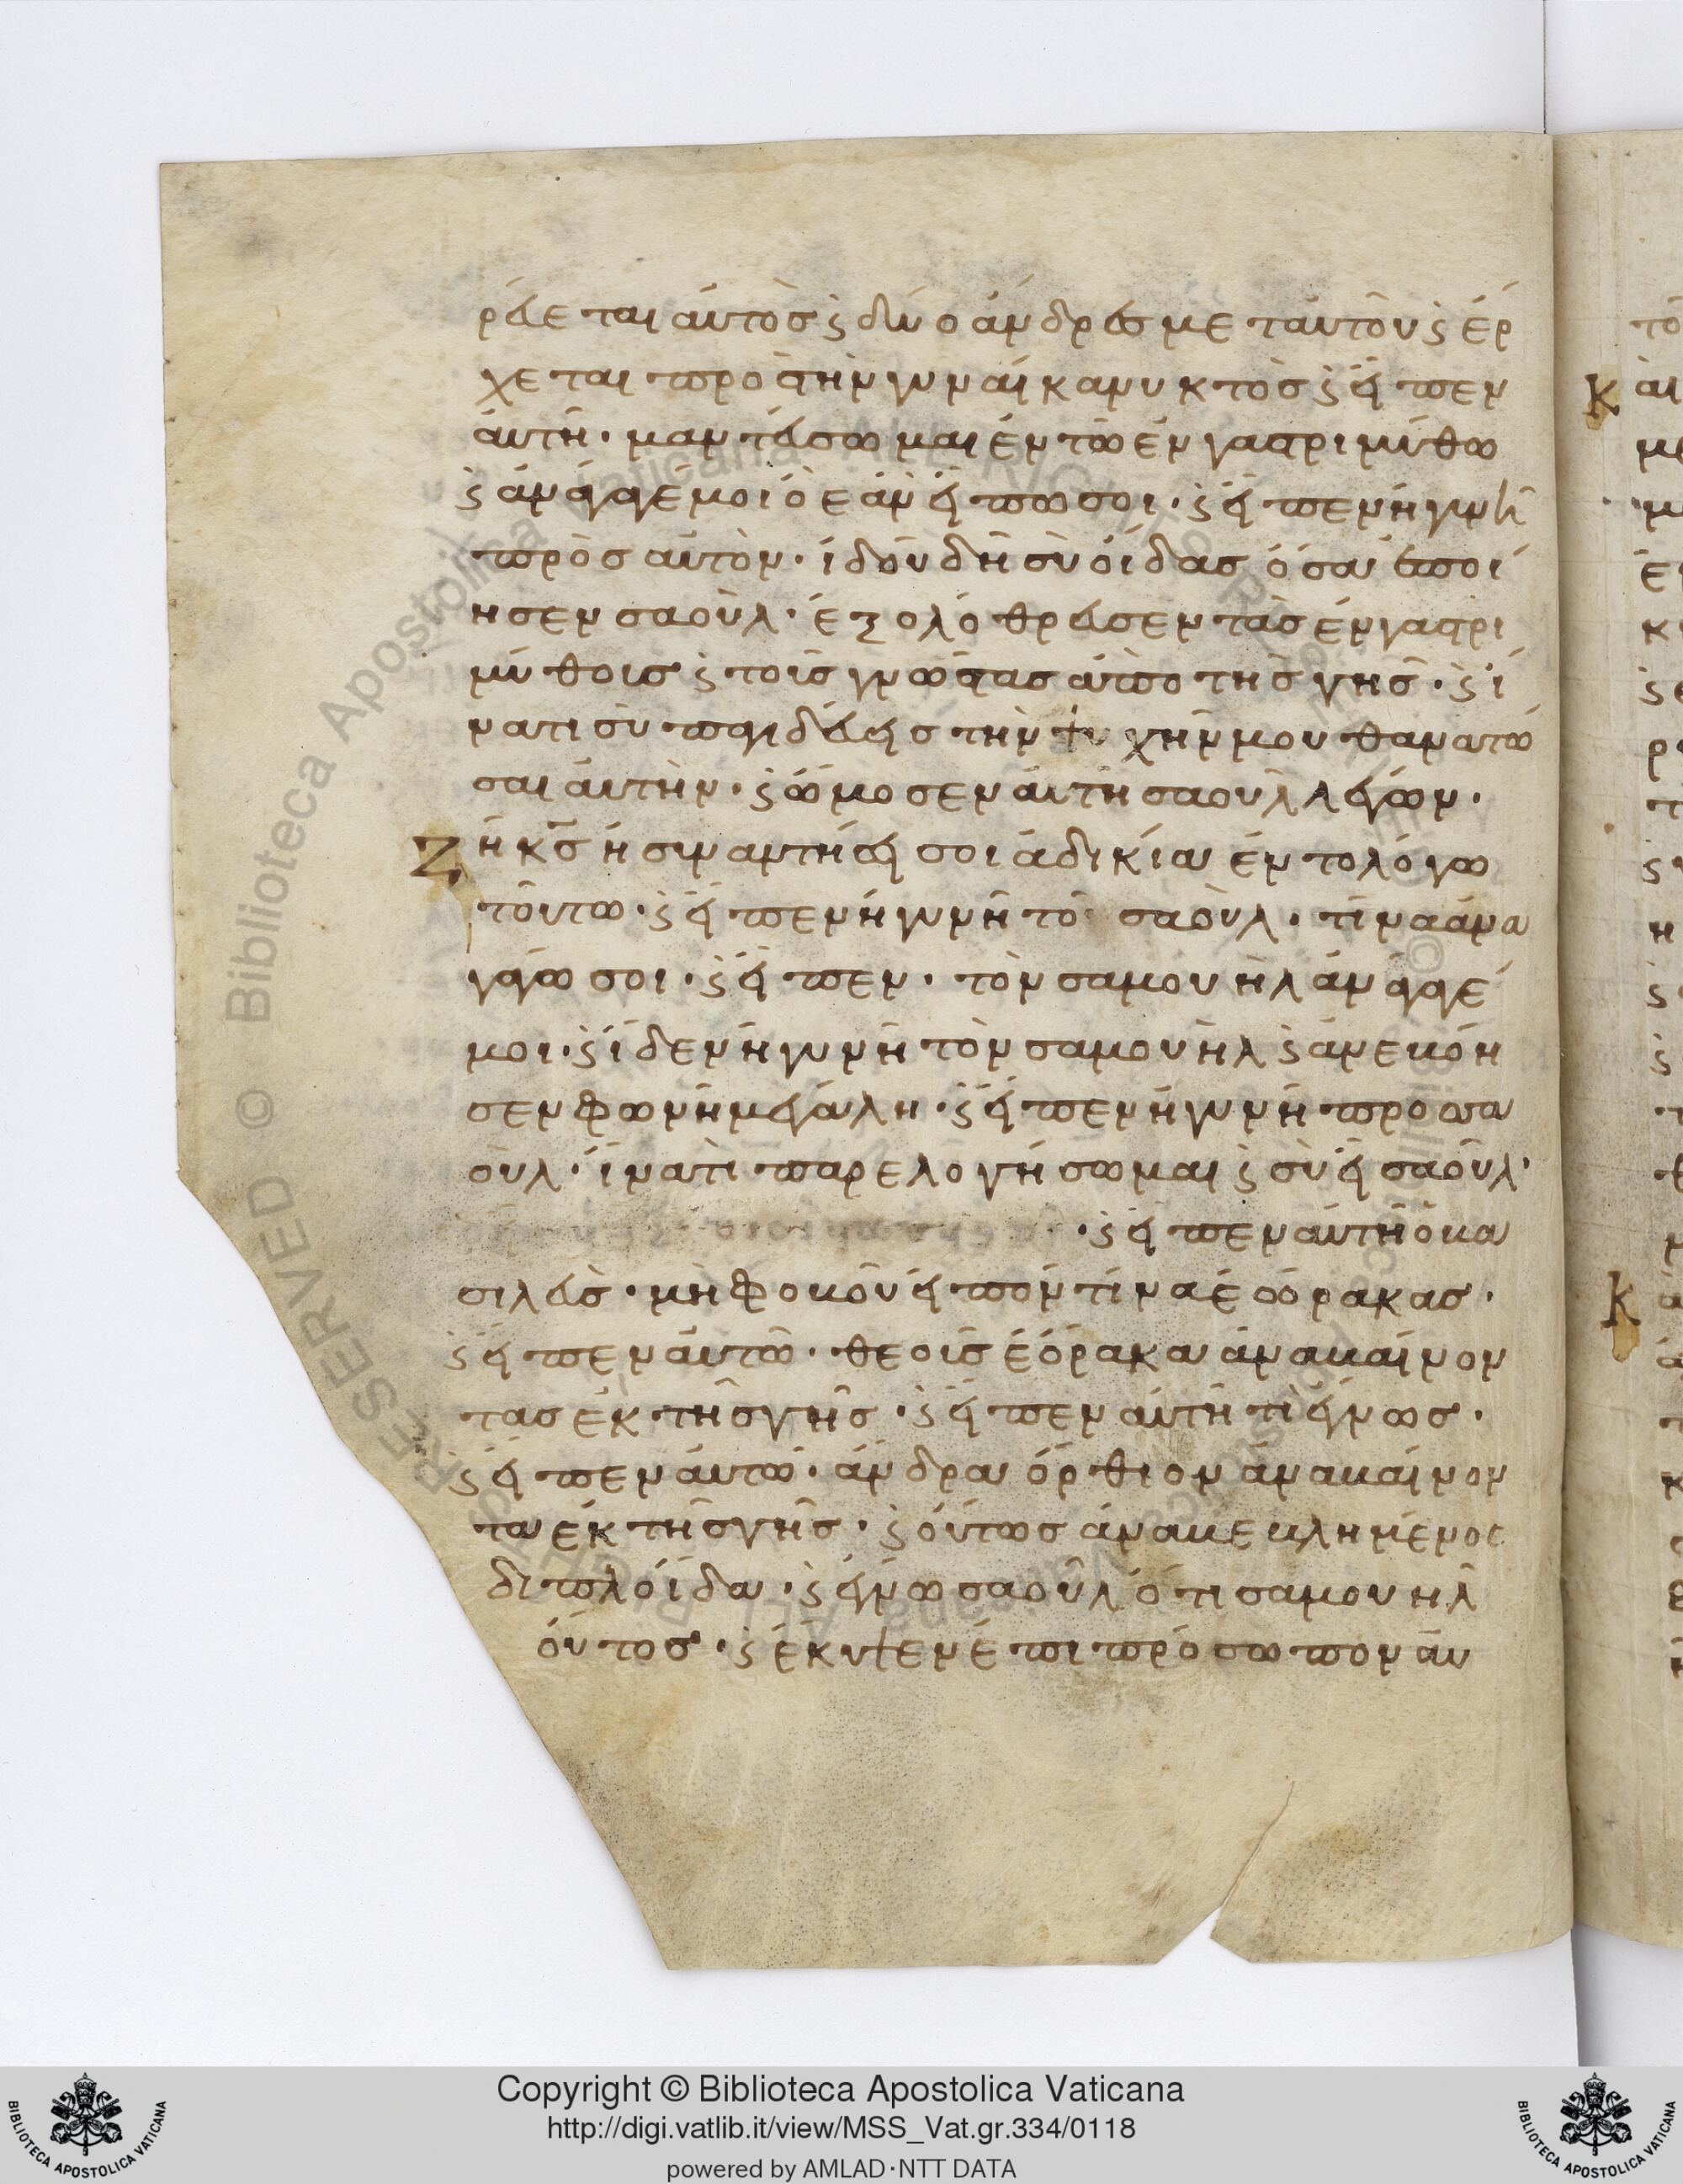 ρεύεται αὐτὸς ϗ δύο ἄνδρες μετ αὐτοῦ ϗ ἔρ
χεται πρὸς τὴν γυναίκα νυκτὸς ϗ εἶπεν
αὐτῆ · μάντευσώ μαι ἐν τῶ ἐνγαστριμύθω
ϗ ἀνάγαγέ μοι ὃ ἐὰν εἴπω σοι · ϗ εἶπεν ἡ γυνὴ
πρὸς αὐτὸν · ἰδοῦ δὴ σὺ οἶδας ὅσα ἐποί
ησεν σαοὺλ · ἐξολόθρευσεν τὰς ἐνγαστρι
μύθοις ϗ τοῖς γνώστας ἀπο τῆς γῆς · ϗ ἵ
νατι σὺ παγιδεύεις τὴν ψυχήν μου θανατῶ
σαι αὐτὴν · ϗ ὤμοσεν αὐτῆ σαοὺλ λέγων ·
Ζῆ κς ἡ συναντήσει σοι ἀδικία ἐν το λόγω
τοῦτω · ϗ εἶπεν ἡ γυνὴ το σαοὺλ · τίνα ἀνα
γάγω σοι · ϗ εἶπεν · τὸν σαμουὴλ ἀνάγαγέ
μοι · ϗ ἴδεν ἡ γυνὴ τὸν σαμουὴλ ϗ ἀνεβόη
σεν φωνῆ μεγάλη · ϗ εἶπεν ἡ γυνὴ προς σα
οὺλ · ἵνατὶ παρελογήσω μαι ϗ σὺ εἶ σαοὺλ ·
· ϗ εἶπεν αὐτῆ ὁ βα
σιλεὺς · μὴ φοβοῦ εἰπὸν τίνα ἑώρακας ·
ϗ εἶπεν αὐτῶ · θεοῖς ἑόρακα ἀναβαίνον
τας ἐκ τῆς γῆς · ϗ εἶπεν αὐτῆ τὶ ἔγνως ·
ϗ εἶπεν αὐτῶ · ἄνδρα ὄρθιον ἀναβαίνον
τα ἐκ τῆς γῆς · ϗ οὗτως ἀναβεβλημένος
διπλοΐδα · ϗ ἔγνω σαοὺλ ὅτι σαμουὴλ
οὗτος · ϗ ἔκυψεν ἐπι πρόσωπον αὐ
Copyright © Biblioteca Apostolica Vaticana
http://digi.vatlib.it/view/MSS_Vat.gr.334/0118
powered by AMLAD·NTT DATA
BIBLIOTECA APOSTOLICA VATICANA
BIBLIOTECA APOSTOLICA VATICANA